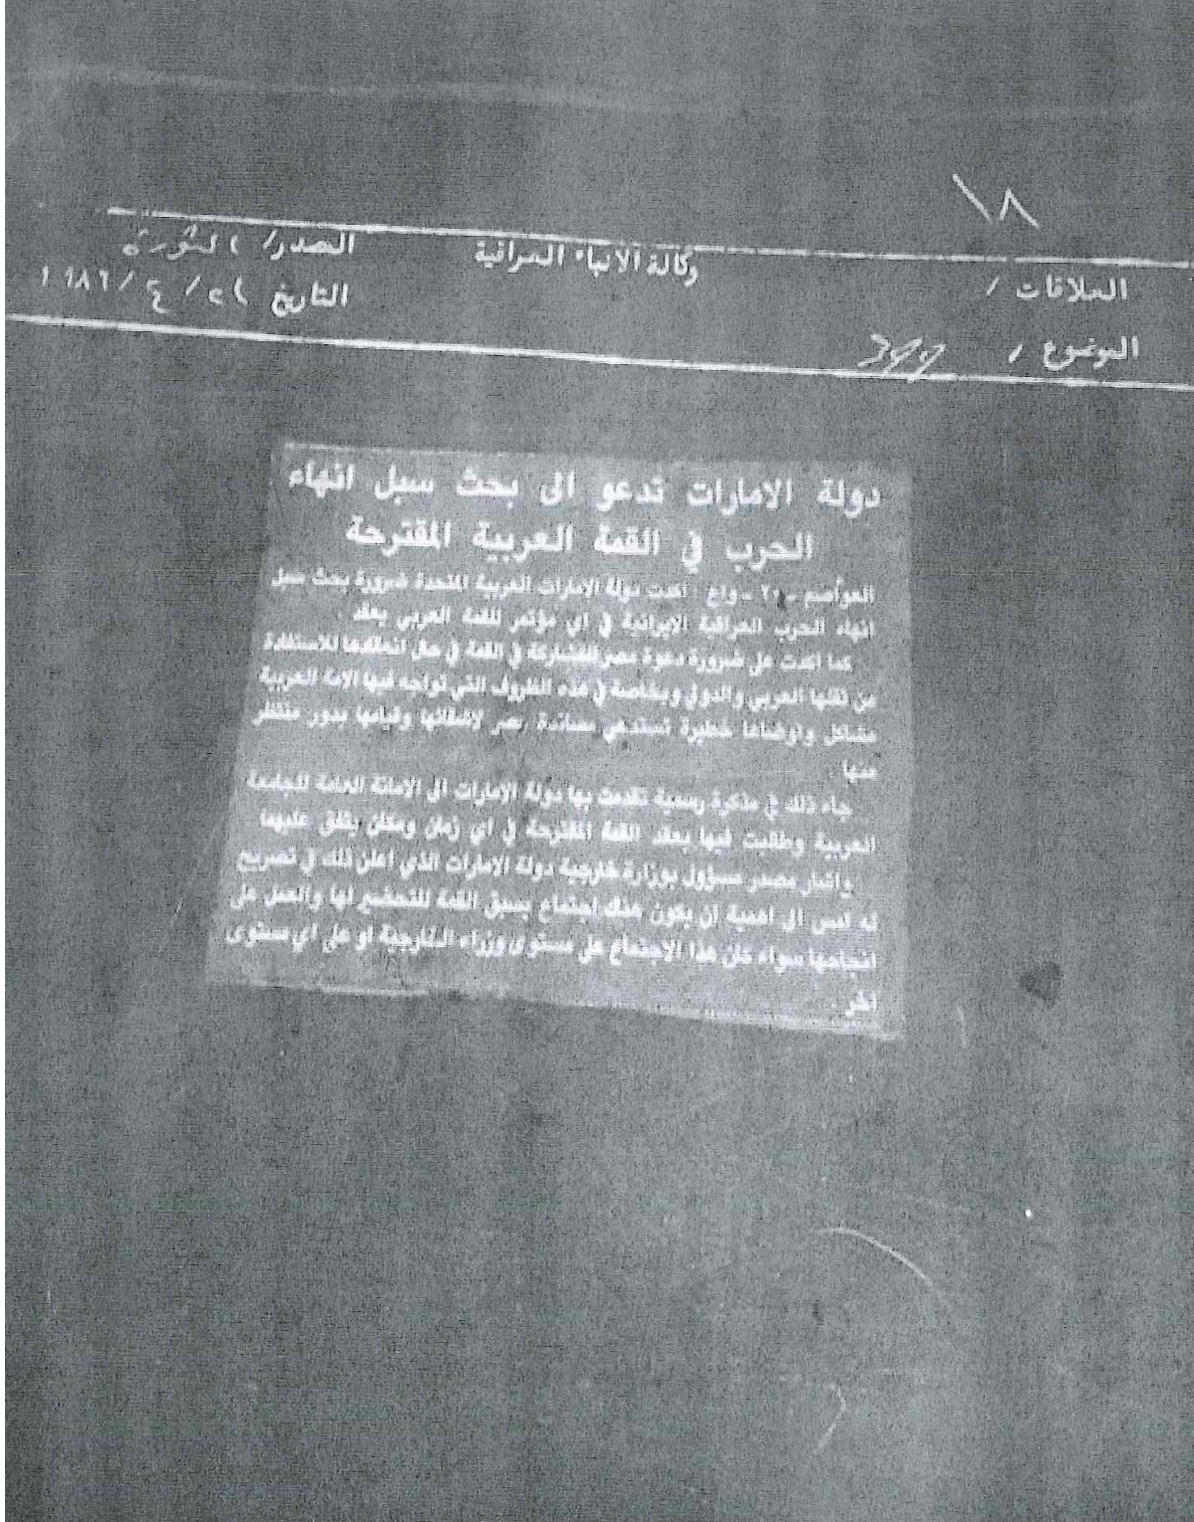 ١٨
العلاقات /
وكالة الانباء العراقية
المصدر / الثورة
التاريخ ٢١ / ٤ / ١٩٨٦
الموضوع /
دولة الامارات تدعو الى بحث سبل انهاء
الحرب في القمة العربية المقترحة
العواصم - ٢٠ - واع : اكدت دولة الامارات العربية المتحدة ضرورة بحث سبل
انهاء الحرب العراقية الايرانية في اي مؤتمر للقمة العربي يعقد
كما اكدت على ضرورة دعوة مصر للمشاركة في القمة في حال انعقادها للاستفادة
من ثقلها العربي والدولي وبخاصة في هذه الظروف التي تواجه فيها الامة العربية
مشاكل واوضاعا خطيرة تستدعي مساندة مصر لاشقائها وقيامها بدور منتظر
منها .
جاء ذلك في مذكرة رسمية تقدمت بها دولة الامارات الى الامانة العامة للجامعة
العربية وطالبت فيها بعقد القمة المقترحة في اي زمان ومكان يتفق عليهما
واشار مصدر مسؤول بوزارة خارجية دولة الامارات الذي اعلن ذلك في تصريح
له امس الى اهمية ان يكون هناك اجتماع يسبق القمة للتحضير لها والعمل على
انجاحها سواء كان هذا الاجتماع على مستوى وزراء الخارجية او على اي مستوى
اخر .